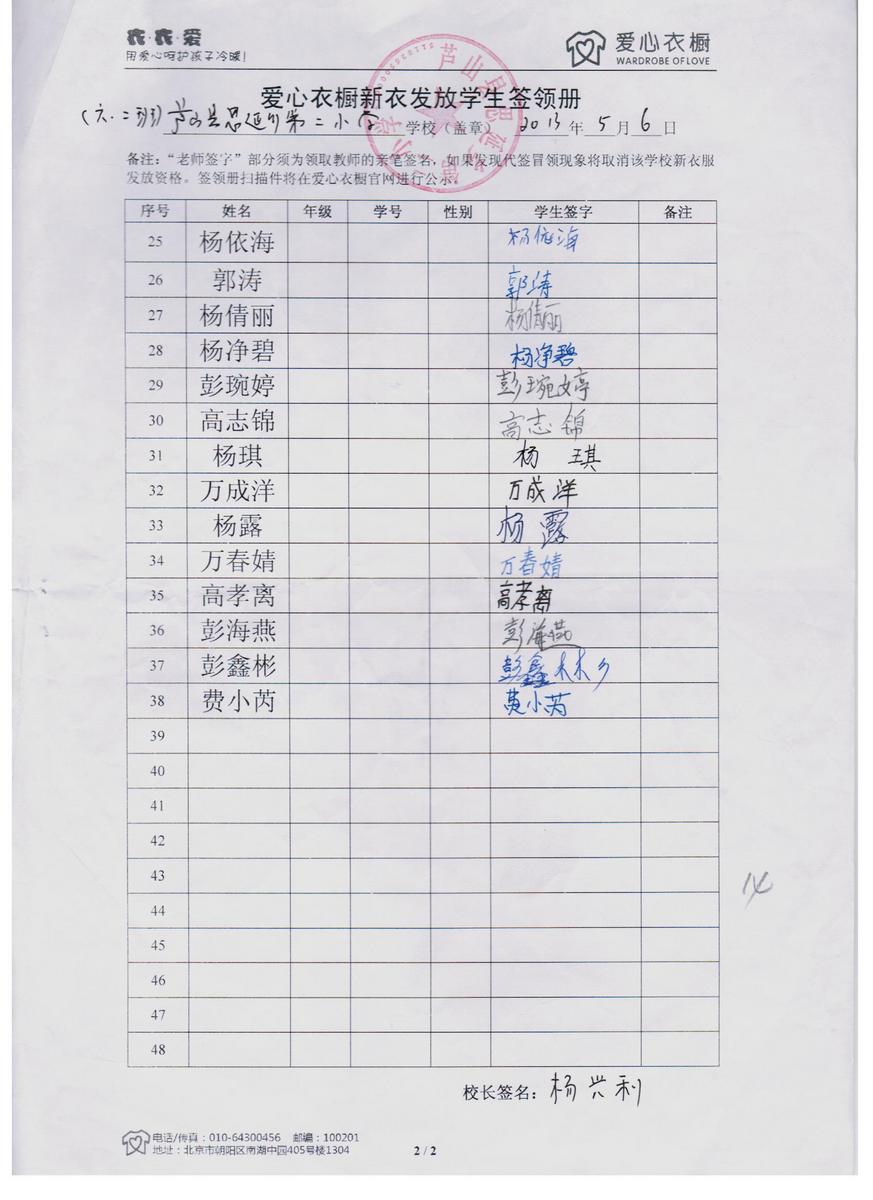 衣·衣·爱
用爱心呵护孩子冷暖!
爱心衣橱
WARDROBE OF LOVE
爱心衣橱新衣发放学生签领册
(六.二班)芦山县思延乡第二小学 学校(盖章) 2013 年 5 月 6 日
备注:“老师签字”部分须为领取教师的亲笔签名,如果发现代签冒领现象将取消该学校新衣服
发放资格。签领册扫描件将在爱心衣橱官网进行公示。
序号 姓名 年级 学号 性别 学生签字 备注
25 杨依海 杨依海
26 郭涛 郭涛
27 杨倩丽 杨倩丽
28 杨净碧 杨净碧
29 彭琬婷 彭琬婷
30 高志锦 高志锦
31 杨琪 杨琪
32 万成洋 万成洋
33 杨露 杨露
34 万春婧 万春婧
35 高孝离 高孝离
36 彭海燕 彭海燕
37 彭鑫彬 彭鑫彬
38 费小芮 费小芮
39
40
41
42
43
44
45
46
47
48
14
校长签名: 杨兴利
电话/传真:010-64300456 邮编:100201
地址:北京市朝阳区南湖中园405号楼1304
2 / 2